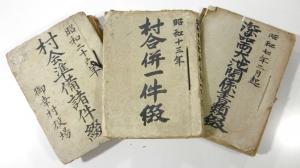 昭和二十年
村会準備諸件綴
村役場
昭和十三年
村合併一件綴
昭和七年二月起
関係書類綴